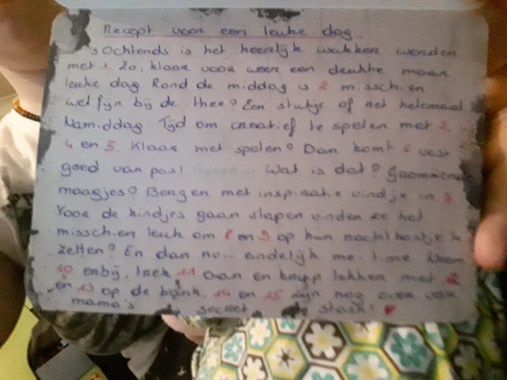 Recept voor een leuke dag...
's Ochtends is het heerlijk wakker worden
met 1. Zo, klaar voor weer een drukke maar
leuke dag. Rond de middag is 2 misschien
wel fijn bij de thee? Een stukje of net helemaal
Namiddag. Tijd om creatief te spelen met 3,
4 en 5. Klaar met spelen? Dan komt 6 vast
goed van pas! ... Wat is dat? Grommende
maagjes? Bergen met inspiratie vind je in 7.
Voor de kindjes gaan slapen vinden ze het
misschien leuk om 8 en 9 op hun nachtkastje te
zetten? En dan nu... eindelijk me-time. Neem
10 erbij, trek 11 aan en kruip lekker met 12
en 13 op de bank. 14 en 15 zijn nog even van
mama's secret stash!